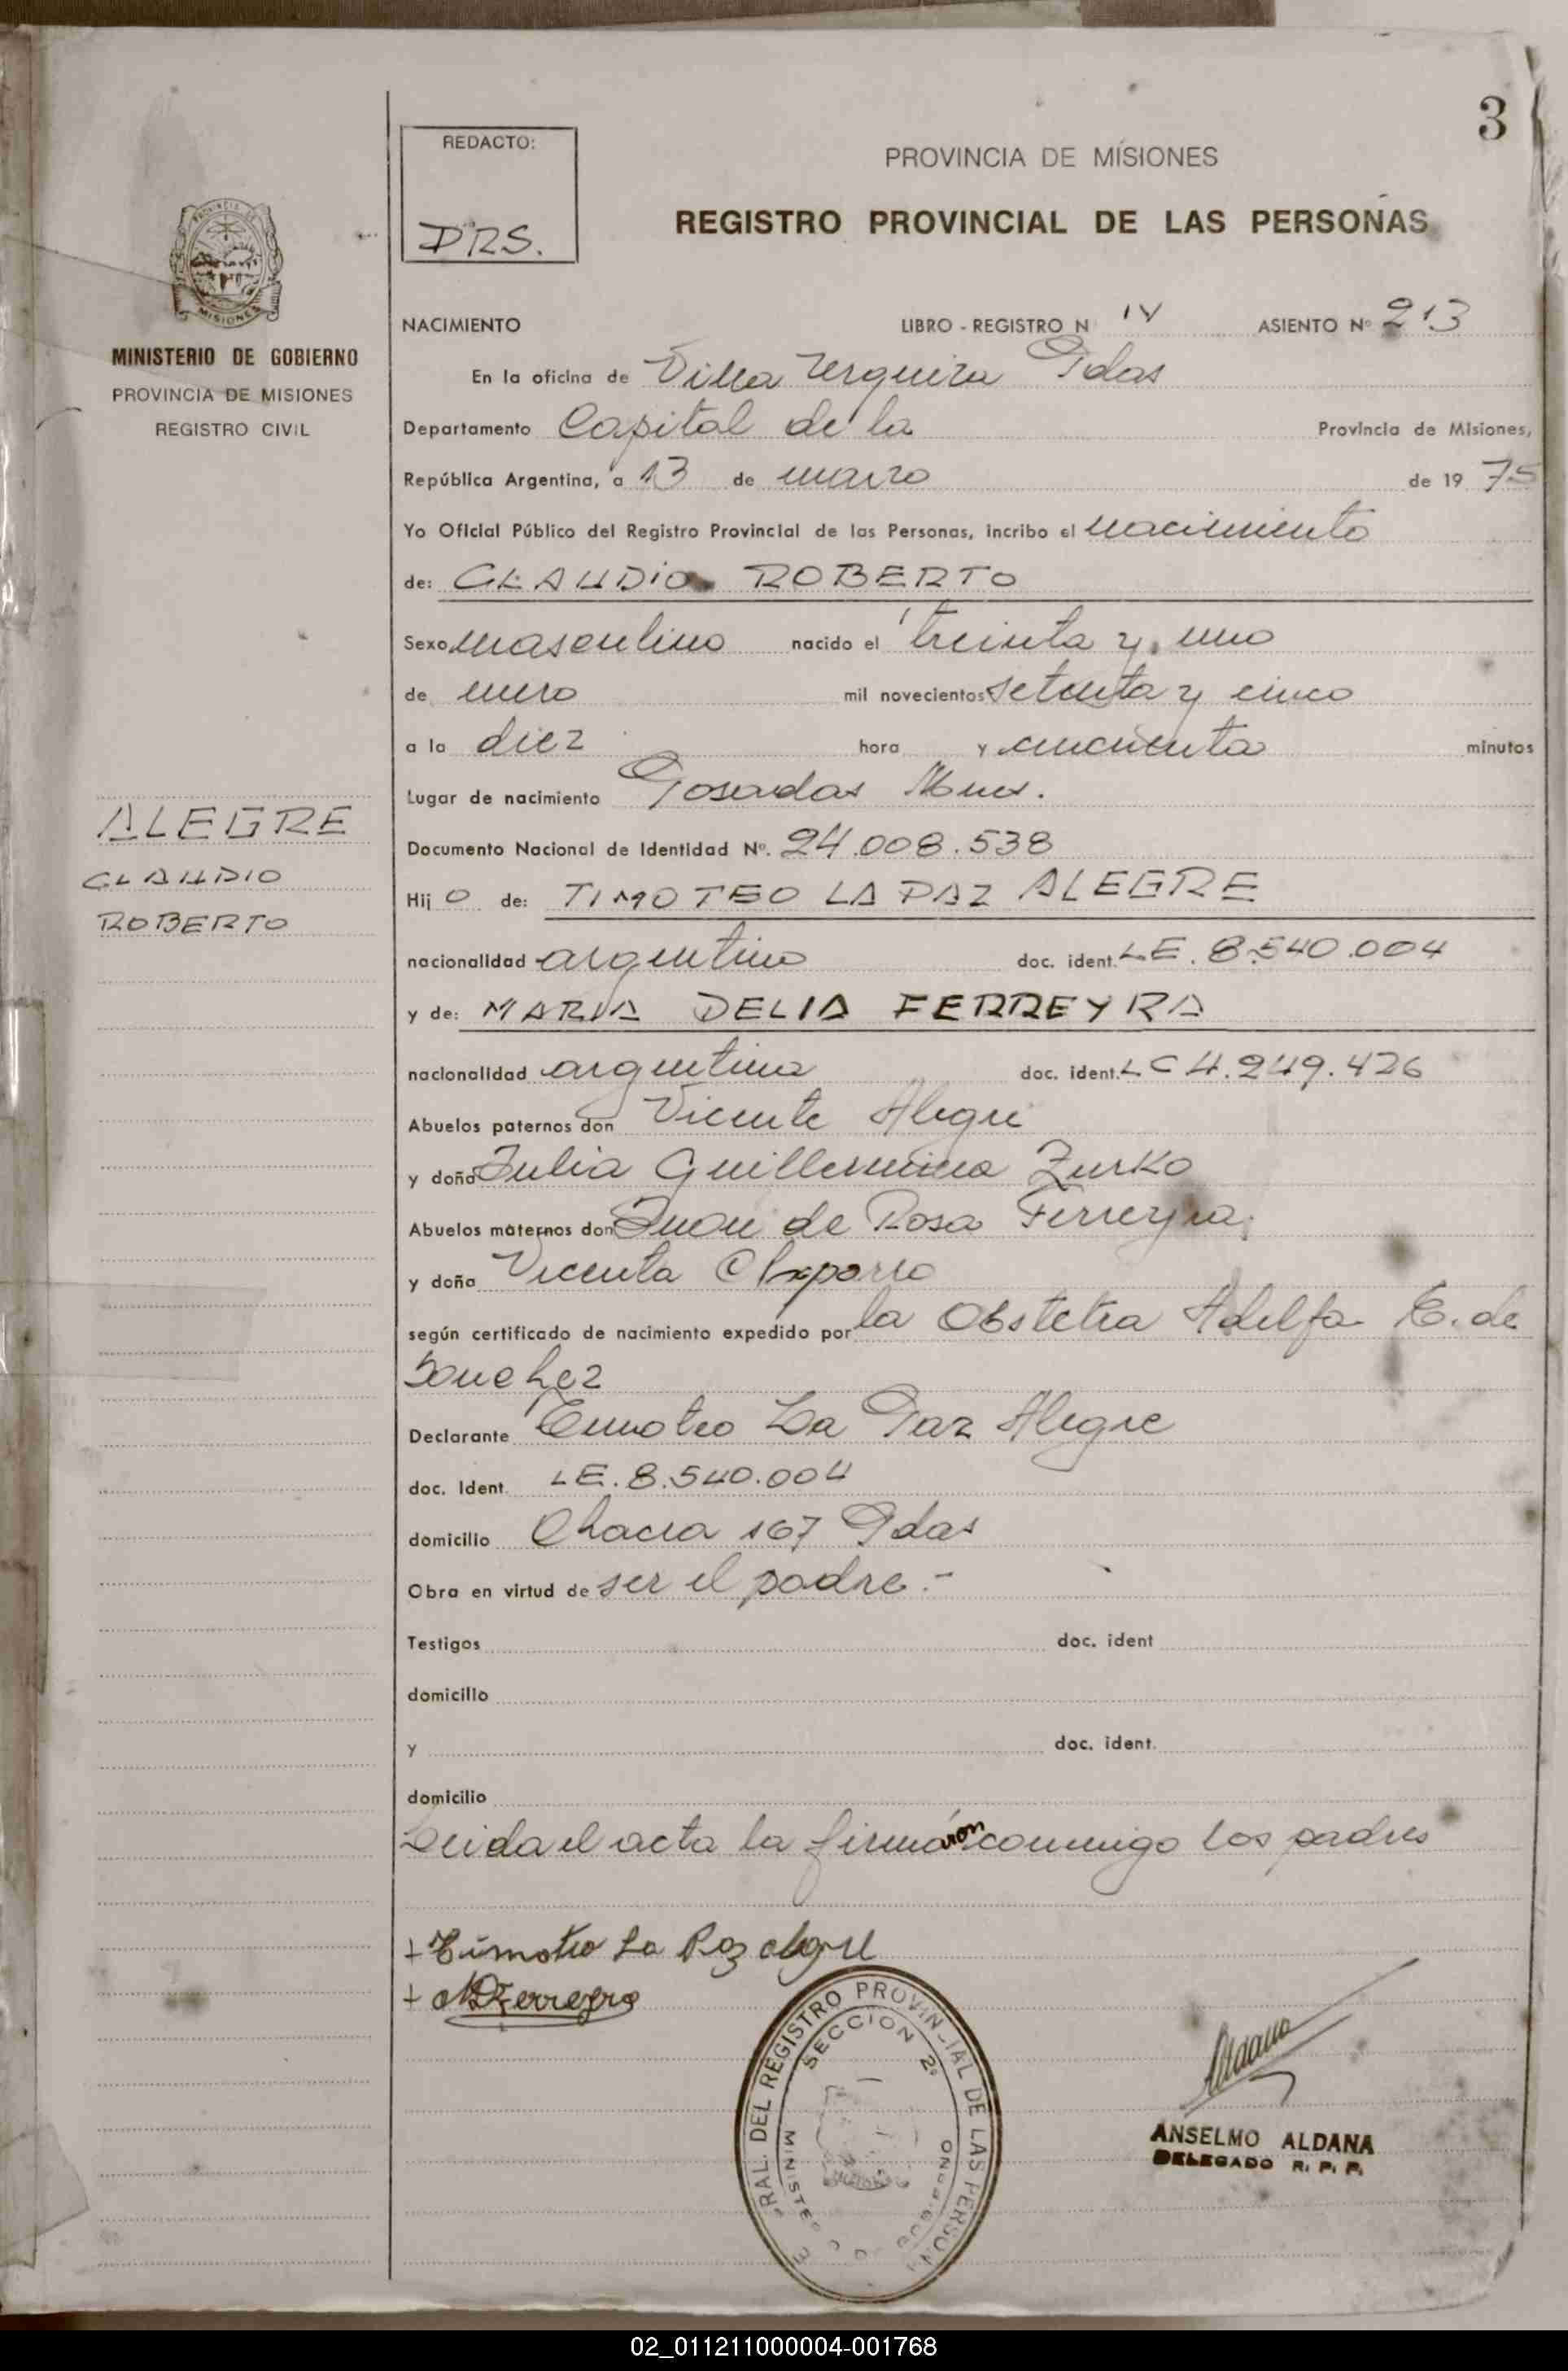 3
REDACTO:
DRS.
PROVINCIA DE MISIONES
REGISTRO PROVINCIAL DE LAS PERSONAS
MISIONES
MINISTERIO DE GOBIERNO
PROVINCIA DE MISIONES
REGISTRO CIVIL
NACIMIENTO LIBRO - REGISTRO N IV ASIENTO Nº 213
En la oficina de Villa Urquiza Pdas
Departamento Capital de la Provincia de Misiones,
República Argentina, a 13 de marzo de 19 75
Yo Oficial Público del Registro Provincial de las Personas, incribo el nacimiento
de: CLAUDIO ROBERTO
Sexo masculino nacido el treinta y uno
de enero mil novecientos setenta y cinco
a la diez hora y cincuenta minutos
Lugar de nacimiento Posadas Mnes.
ALEGRE
CLAUDIO
ROBERTO
Documento Nacional de Identidad Nº. 24.008.538
Hij o de: TIMOTEO LA PAZ ALEGRE
nacionalidad argentino doc. ident. LE. 8.540.004
y de: MARIA DELIA FERREYRA
nacionalidad argentina doc. ident. LC 4.249.426
Abuelos paternos don Vicente Alegre
y doña Julia Guillermina Zurko
Abuelos maternos don Juan de Rosa Ferreyra
y doña Vicenta Chaparro
según certificado de nacimiento expedido por la Obstetra Adelfa E. de
Sanchez
Declarante Timoteo La Paz Alegre
doc. Ident. LE. 8.540.004
domicilio Chacra 167 Pdas
Obra en virtud de ser el padre.-
Testigos doc. ident
domicilio
y doc. ident.
domicilio
Leida el acta la firmaron conmigo los padres
+ Timoteo La Paz Alegre
+ MDFerreyra
RAL. DEL REGISTRO PROVINCIAL DE LAS PERSON
SECCION 2º
MINISTE
Aldana
ANSELMO ALDANA
DELEGADO R. P. P.
02_011211000004-001768